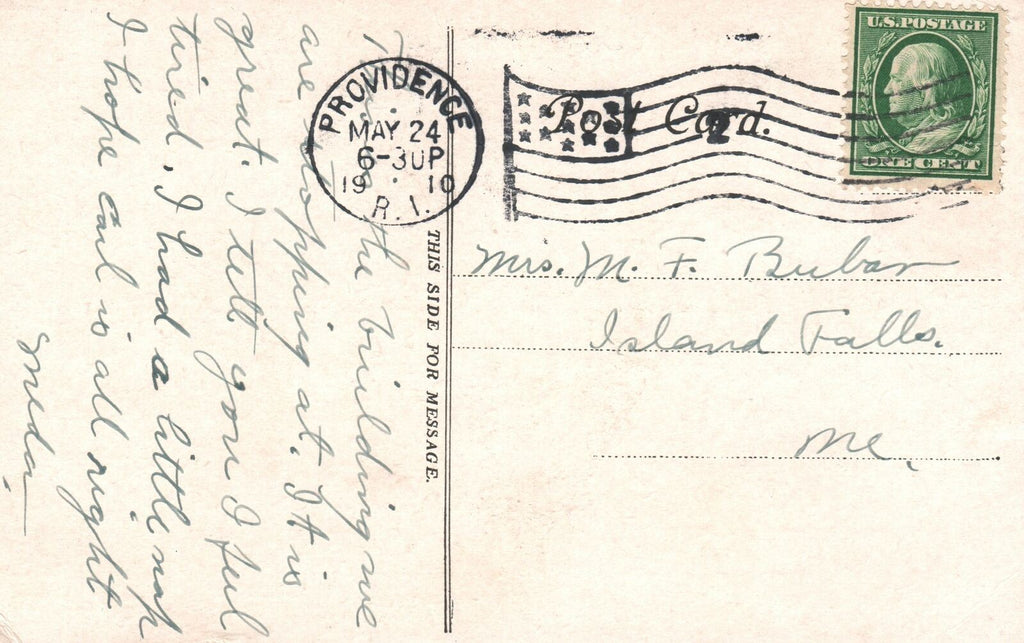 This is the building we
are stopping at. It is
great. I tell you I feel
tired. I had a little nap
I hope earl is all right
Smeda
THIS SIDE FOR MESSAGE.
PROVIDENCE
MAY 24
6-30P
19 10
R.I.
Post Card.
2
U.S. POSTAGE
ONE CENT
Mrs. M. F. Bubar
Island Falls.
Me.